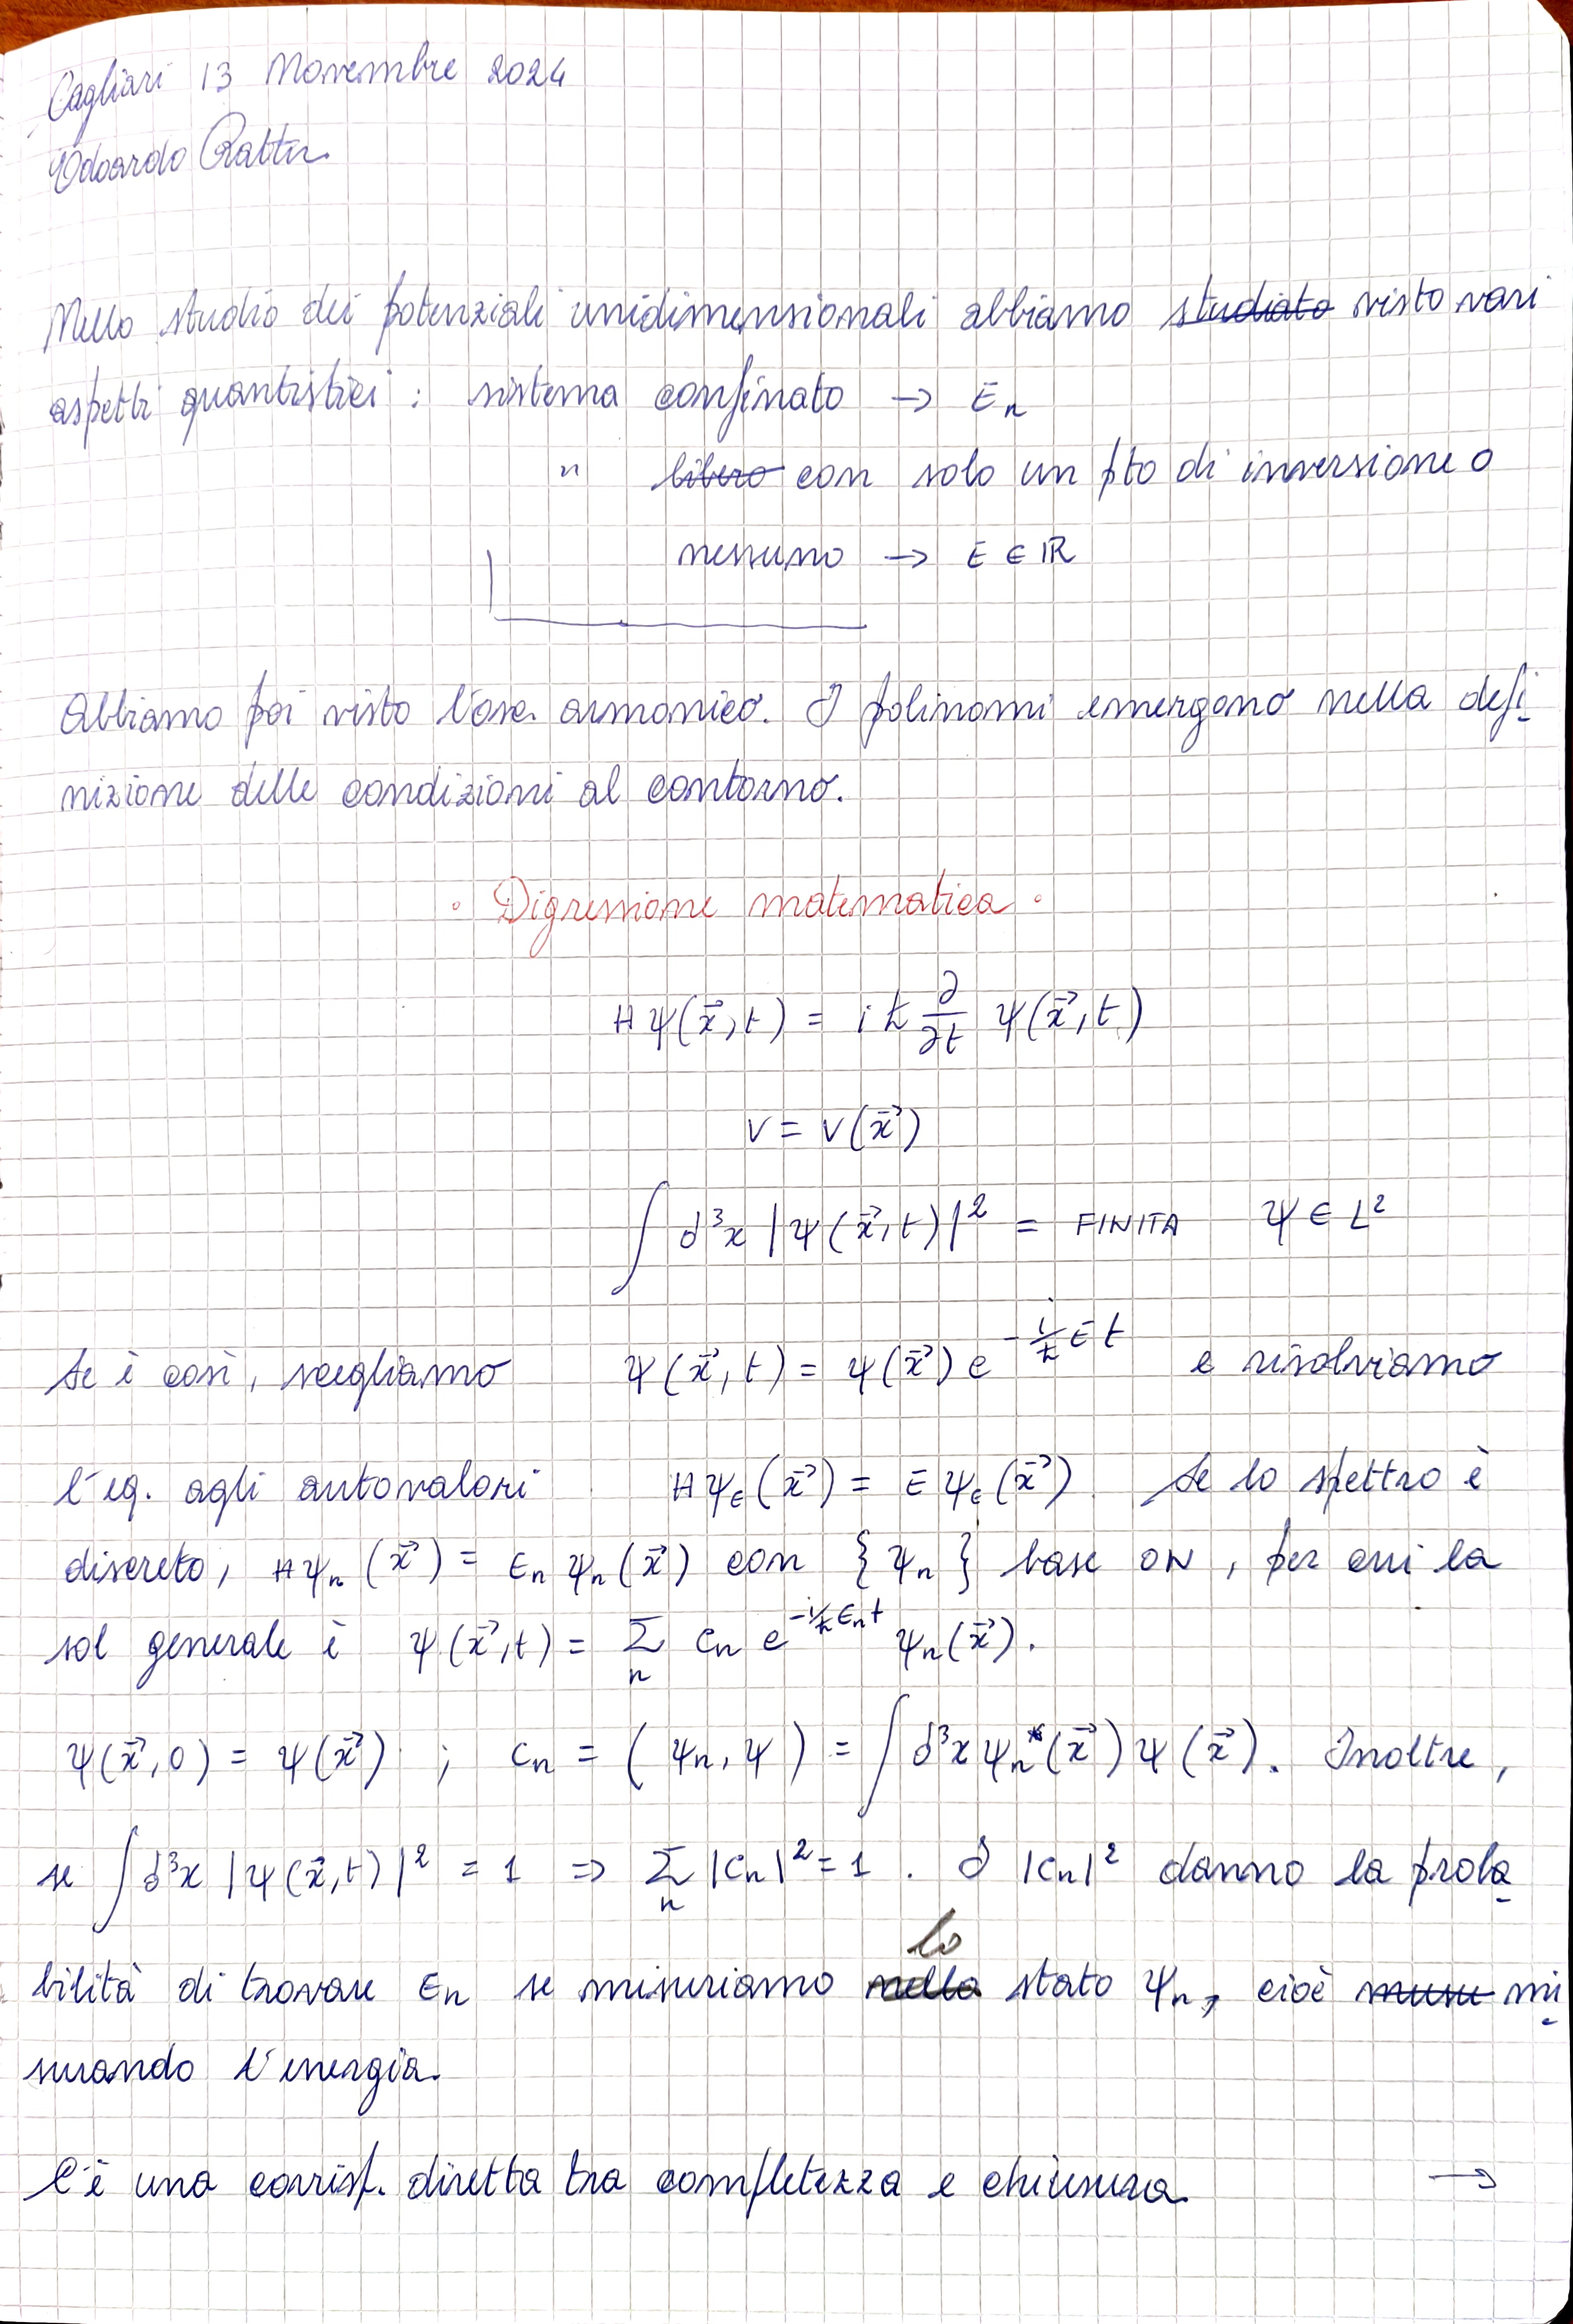 Cagliari 13 Novembre 2024
Edoardo
Nello studio dei potenziali unidimensionali abbiamo ~~studiato~~ visto vari
aspetti quantistici : sistema confinato → Eₙ
" ~~libero~~ con solo un pto di inversione o
nessuno → E ∈ ℝ
Abbiamo poi visto l'osc. armonico. I polinomi emergono nella defi
nizione delle condizioni al contorno.
· Digressione matematica ·
Hψ(x⃗,t) = iℏ ∂/∂t ψ(x⃗,t)
V = V(x⃗)
∫ d³x |ψ(x⃗,t)|² = FINITA ψ ∈ L²
Se è così, scegliamo ψ(x⃗,t) = ψ(x⃗) e^{-i/ℏ E t} e risolviamo
l'eq. agli autovalori Hψ_E(x⃗) = Eψ_E(x⃗). Se lo spettro è
discreto, Hψₙ(x⃗) = Eₙψₙ(x⃗) con {ψₙ} base ON, per cui la
sol generale è ψ(x⃗,t) = Σₙ cₙ e^{-i/ℏ Eₙt} ψₙ(x⃗).
ψ(x⃗,0) = ψ(x⃗) ; cₙ = (ψₙ,ψ) = ∫ d³x ψₙ*(x⃗)ψ(x⃗). Inoltre,
se ∫ d³x |ψ(x⃗,t)|² = 1 ⇒ Σₙ |cₙ|² = 1 . I |cₙ|² danno la proba
bilità di trovare Eₙ se misuriamo ~~nello~~ lo stato ψₙ, cioè ~~musu~~ mi
surando l'energia.
C'è una corrisp. diretta tra completezza e chiusura. →